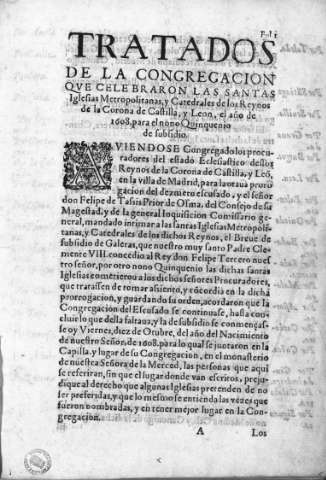 Fol 1
TRATADOS
DE LA CONGREGACION
QVE CELEBRARON LAS SANTAS
Iglesias Metropolitanas, y Catedrales de los Reynos
de la Corona de Castilla, y Leon, el año de
1608. para el nono Quinquenio
de subsidio.
AVIENDOSE Congregado los procu-
radores del estado Eclesiastico destos
Reynos de la Corona de Castilla, y Leō,
en la villa de Madrid, para la otaua proro-
gacion del dezmero escusado, y el señor
don Felipe de Tassis Prior de Osma, del Consejo de su
Magestad, y de la general Inquisicion Comissario ge-
neral, mandado intimar a las santas Iglesias Metropoli-
tanas, y Catedrales de los dichos Reynos, el Breue de
subsidio de Galeras, que nuestro muy santo Padre Cle-
mente VIII. concedio al Rey don Felipe Tercero nues-
tro señor, por otro nono Quinquenio las dichas santas
Iglesias cometieron a los dichos señores Procuradores,
que tratassen de tomar assiento, y cōcordia en la dicha
prorrogacion, y guardando su orden, acordaron que la
Congregacion del Escusado se continuase, hasta con-
cluir lo que della faltaua, y la de subsidio se començas-
se oy Viernes, diez de Otubre, del año del Nacimiento
de nuestro Señor, de 1608. para lo qual se juntaron en la
Capilla, y lugar de su Congregacion, en el monasterio
de nuestra Señora de la Merced, las personas que aqui
se referiran, sin que el lugar donde van escritos, preju-
dique al derecho que algunas Iglesias pretenden de no
ser preferidas, y que lo mesmo se entienda las vezes que
fueron nombradas, y en tener mejor lugar en la Con-
gregacion.
A Los